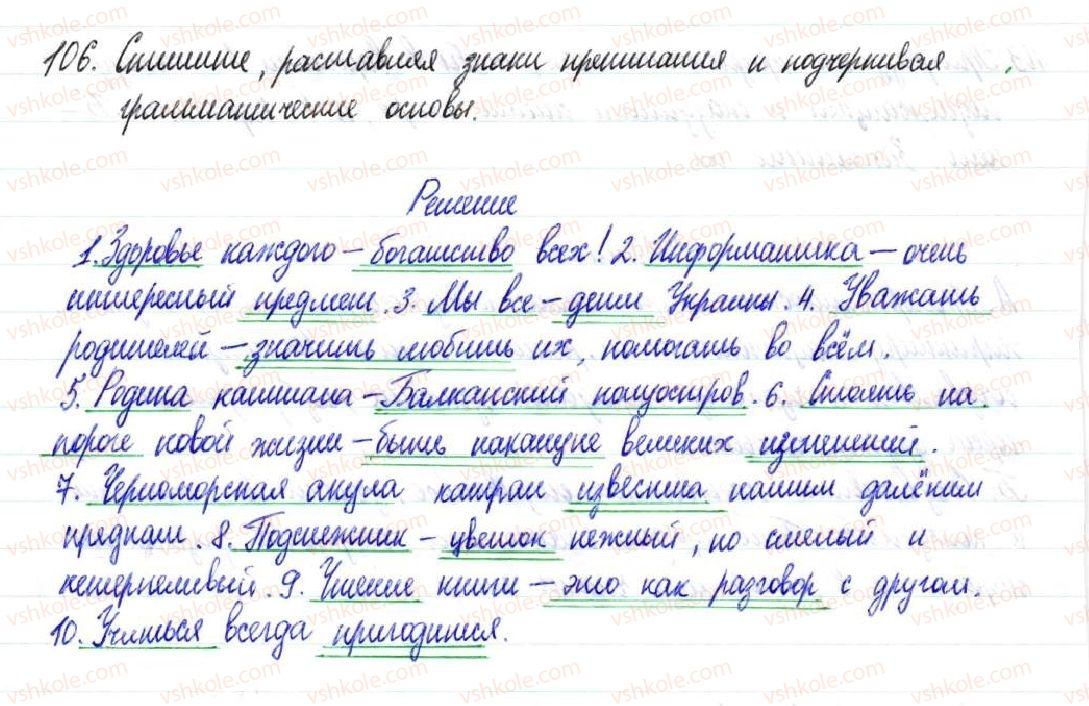 106. Спишите, расставляя знаки препинания и подчеркивая
грамматические основы.
Решение
1. Здоровье каждого – богатство всех! 2. Информатика – очень
интересный предмет. 3. Мы все – дети Украины. 4. Уважать
родителей – значить любить их, помогать во всём.
5. Родина каштана – Балканский полуостров. 6. Стоять на
пороге новой жизни – быть накануне великих изменений.
7. Черноморская акула катран известна нашим далёким
предкам. 8. Подснежник – цветок нежный, но смелый и
нетерпеливый. 9. Чтение книги – это как разговор с другом.
10. Учиться всегда пригодится.